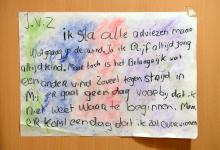 J.V.Z
ik sla alle adviezen maar
in de wind. Ja ik Blijf altijd jong
altijd kind. Maar toch is het Belangrijk wat
een ander vind zoveel tegenstrijd in
Mij er gaat geen dag voorbij dat ik
niet weet waar te beginnen. Maar
er komt een dag dat ik zal overwinnen